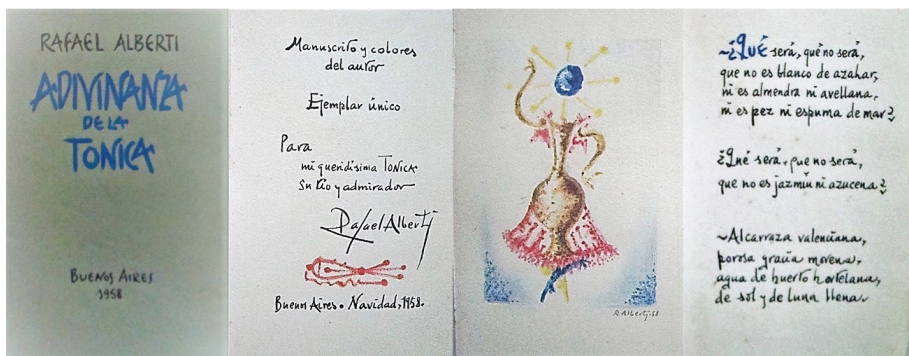 RAFAEL ALBERTI
ADIVINANZA
DE LA
TONICA
BUENOS AIRES
1958
Manuscrito y colores
del autor
Ejemplar único
Para
mi queridísima TONICA
Su tío y admirador
Rafael Alberti
Buenos Aires. Navidad, 1958.
R. Alberti 58
~¿QUÉ será, que no será,
que no es blanco de azahar,
ni es almendra ni avellana,
ni es pez ni espuma de mar?
¿Qué será, que no será,
que no es jazmín ni azucena?
~Alcarraza valenciana,
porosa gracia morena,
agua de huerto hortelana,
de sol y de luna llena.